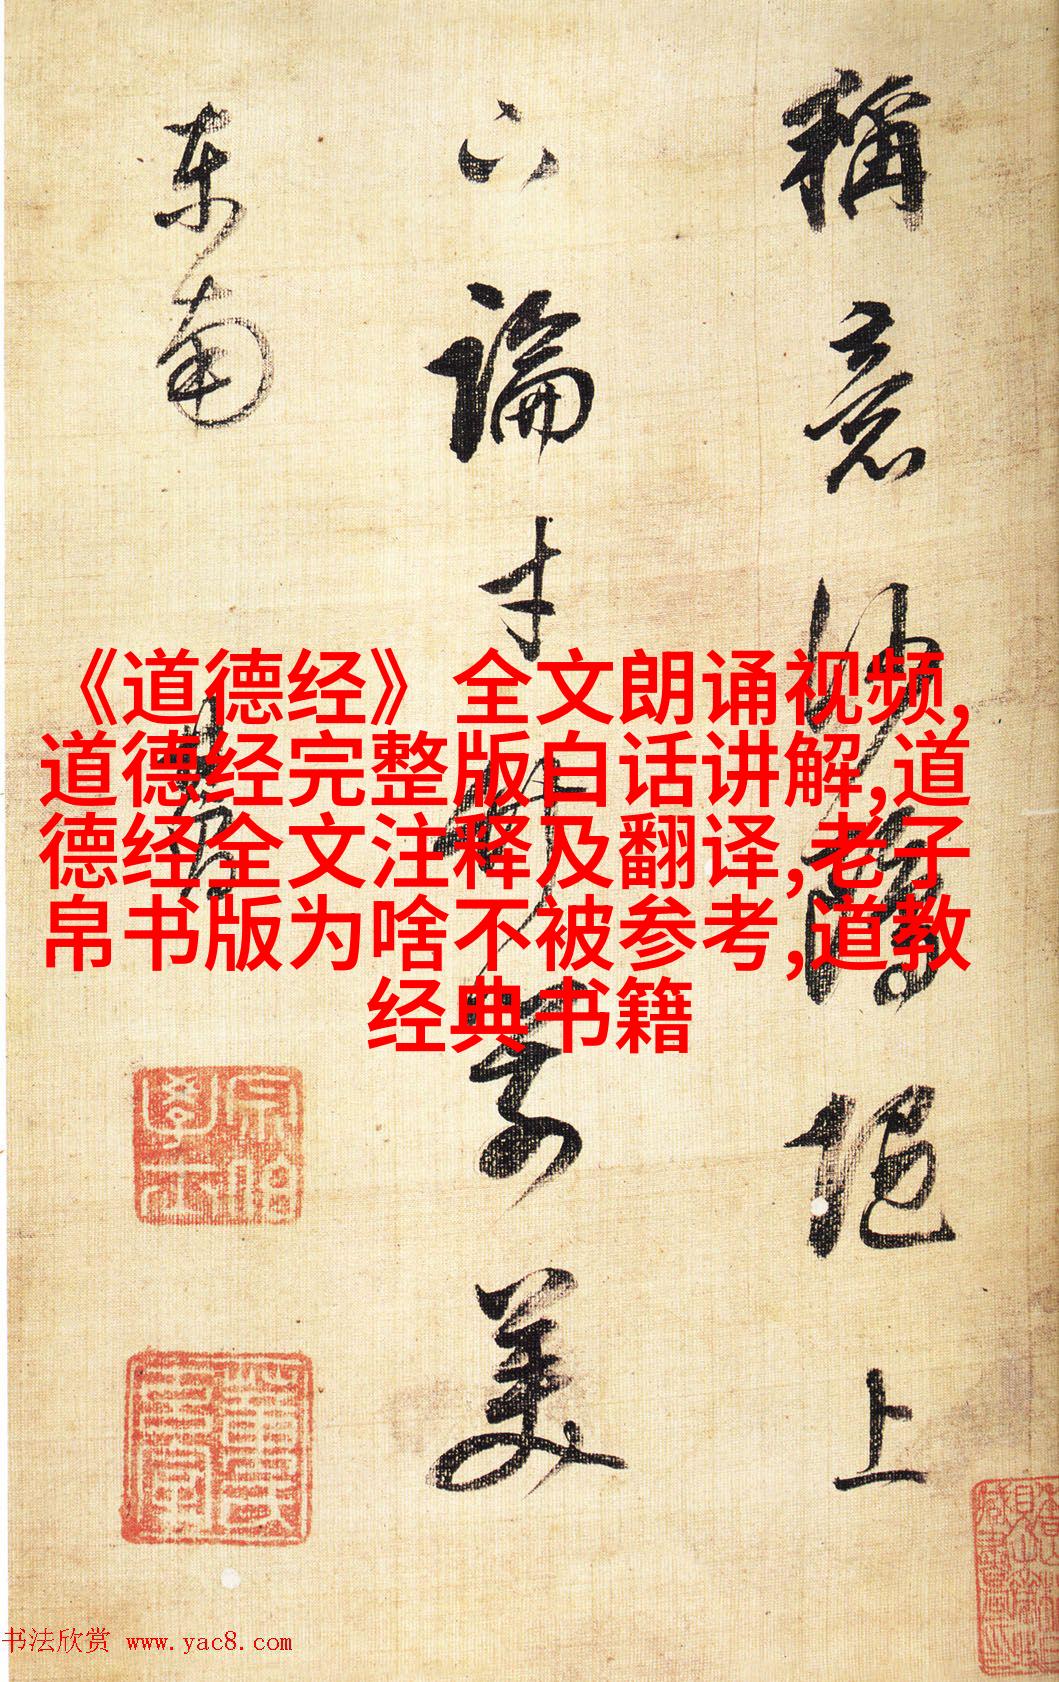 《道德经》全文朗诵视频,
道德经完整版白话讲解,道
德经全文注释及翻译,老子
帛书版为啥不被参考,道教
经典书籍
稱意上
論才美
東南
其昌
宗伯學士
董氏玄宰
书法欣赏 www.yac8.com